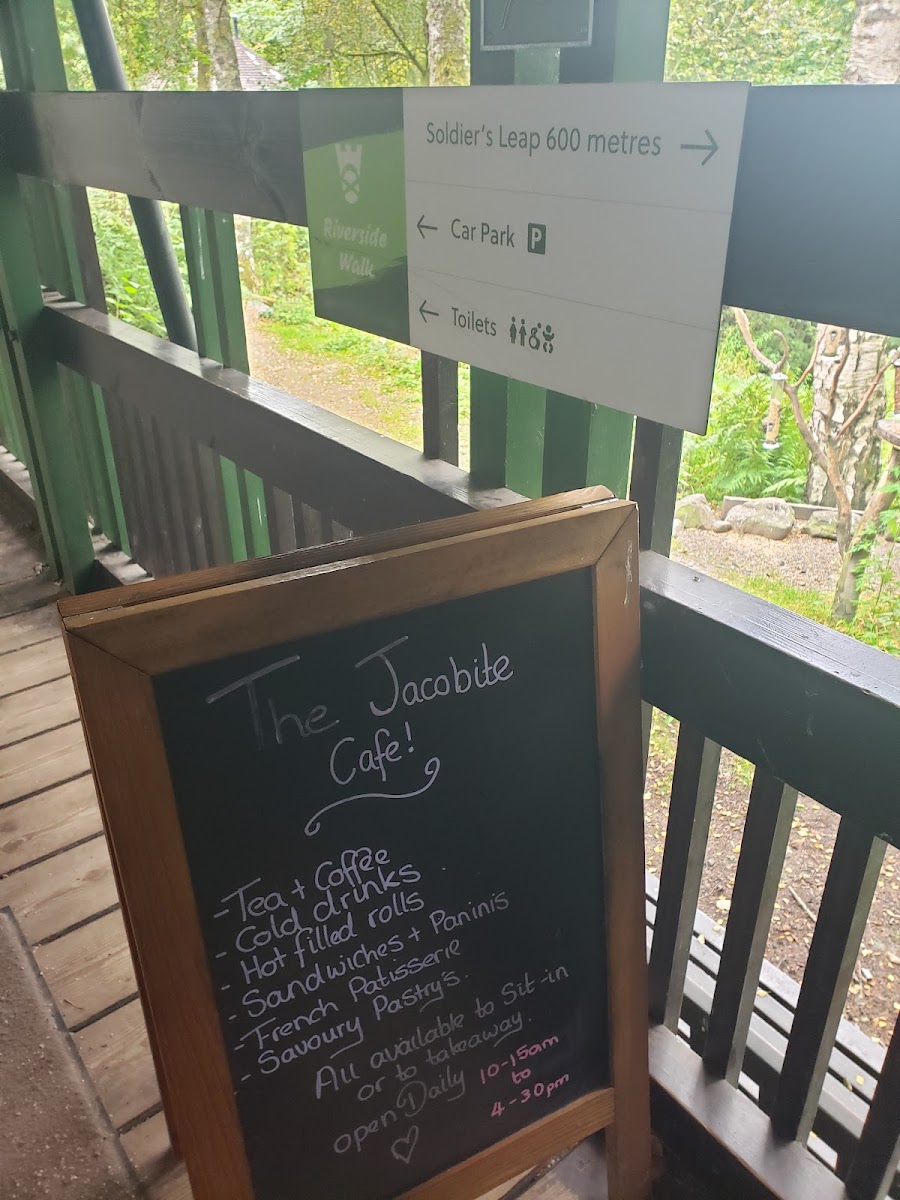 Soldier's Leap 600 metres →
← Car Park P
← Toilets
Riverside
Walk
The Jacobite
Cafe!
- Tea + Coffee
- Cold drinks
- Hot filled rolls
- Sandwiches + Paninis
- French Patisserie
- Savoury Pastry's.
All available to Sit-in
or to takeaway.
open Daily 10-15am
to
4-30pm